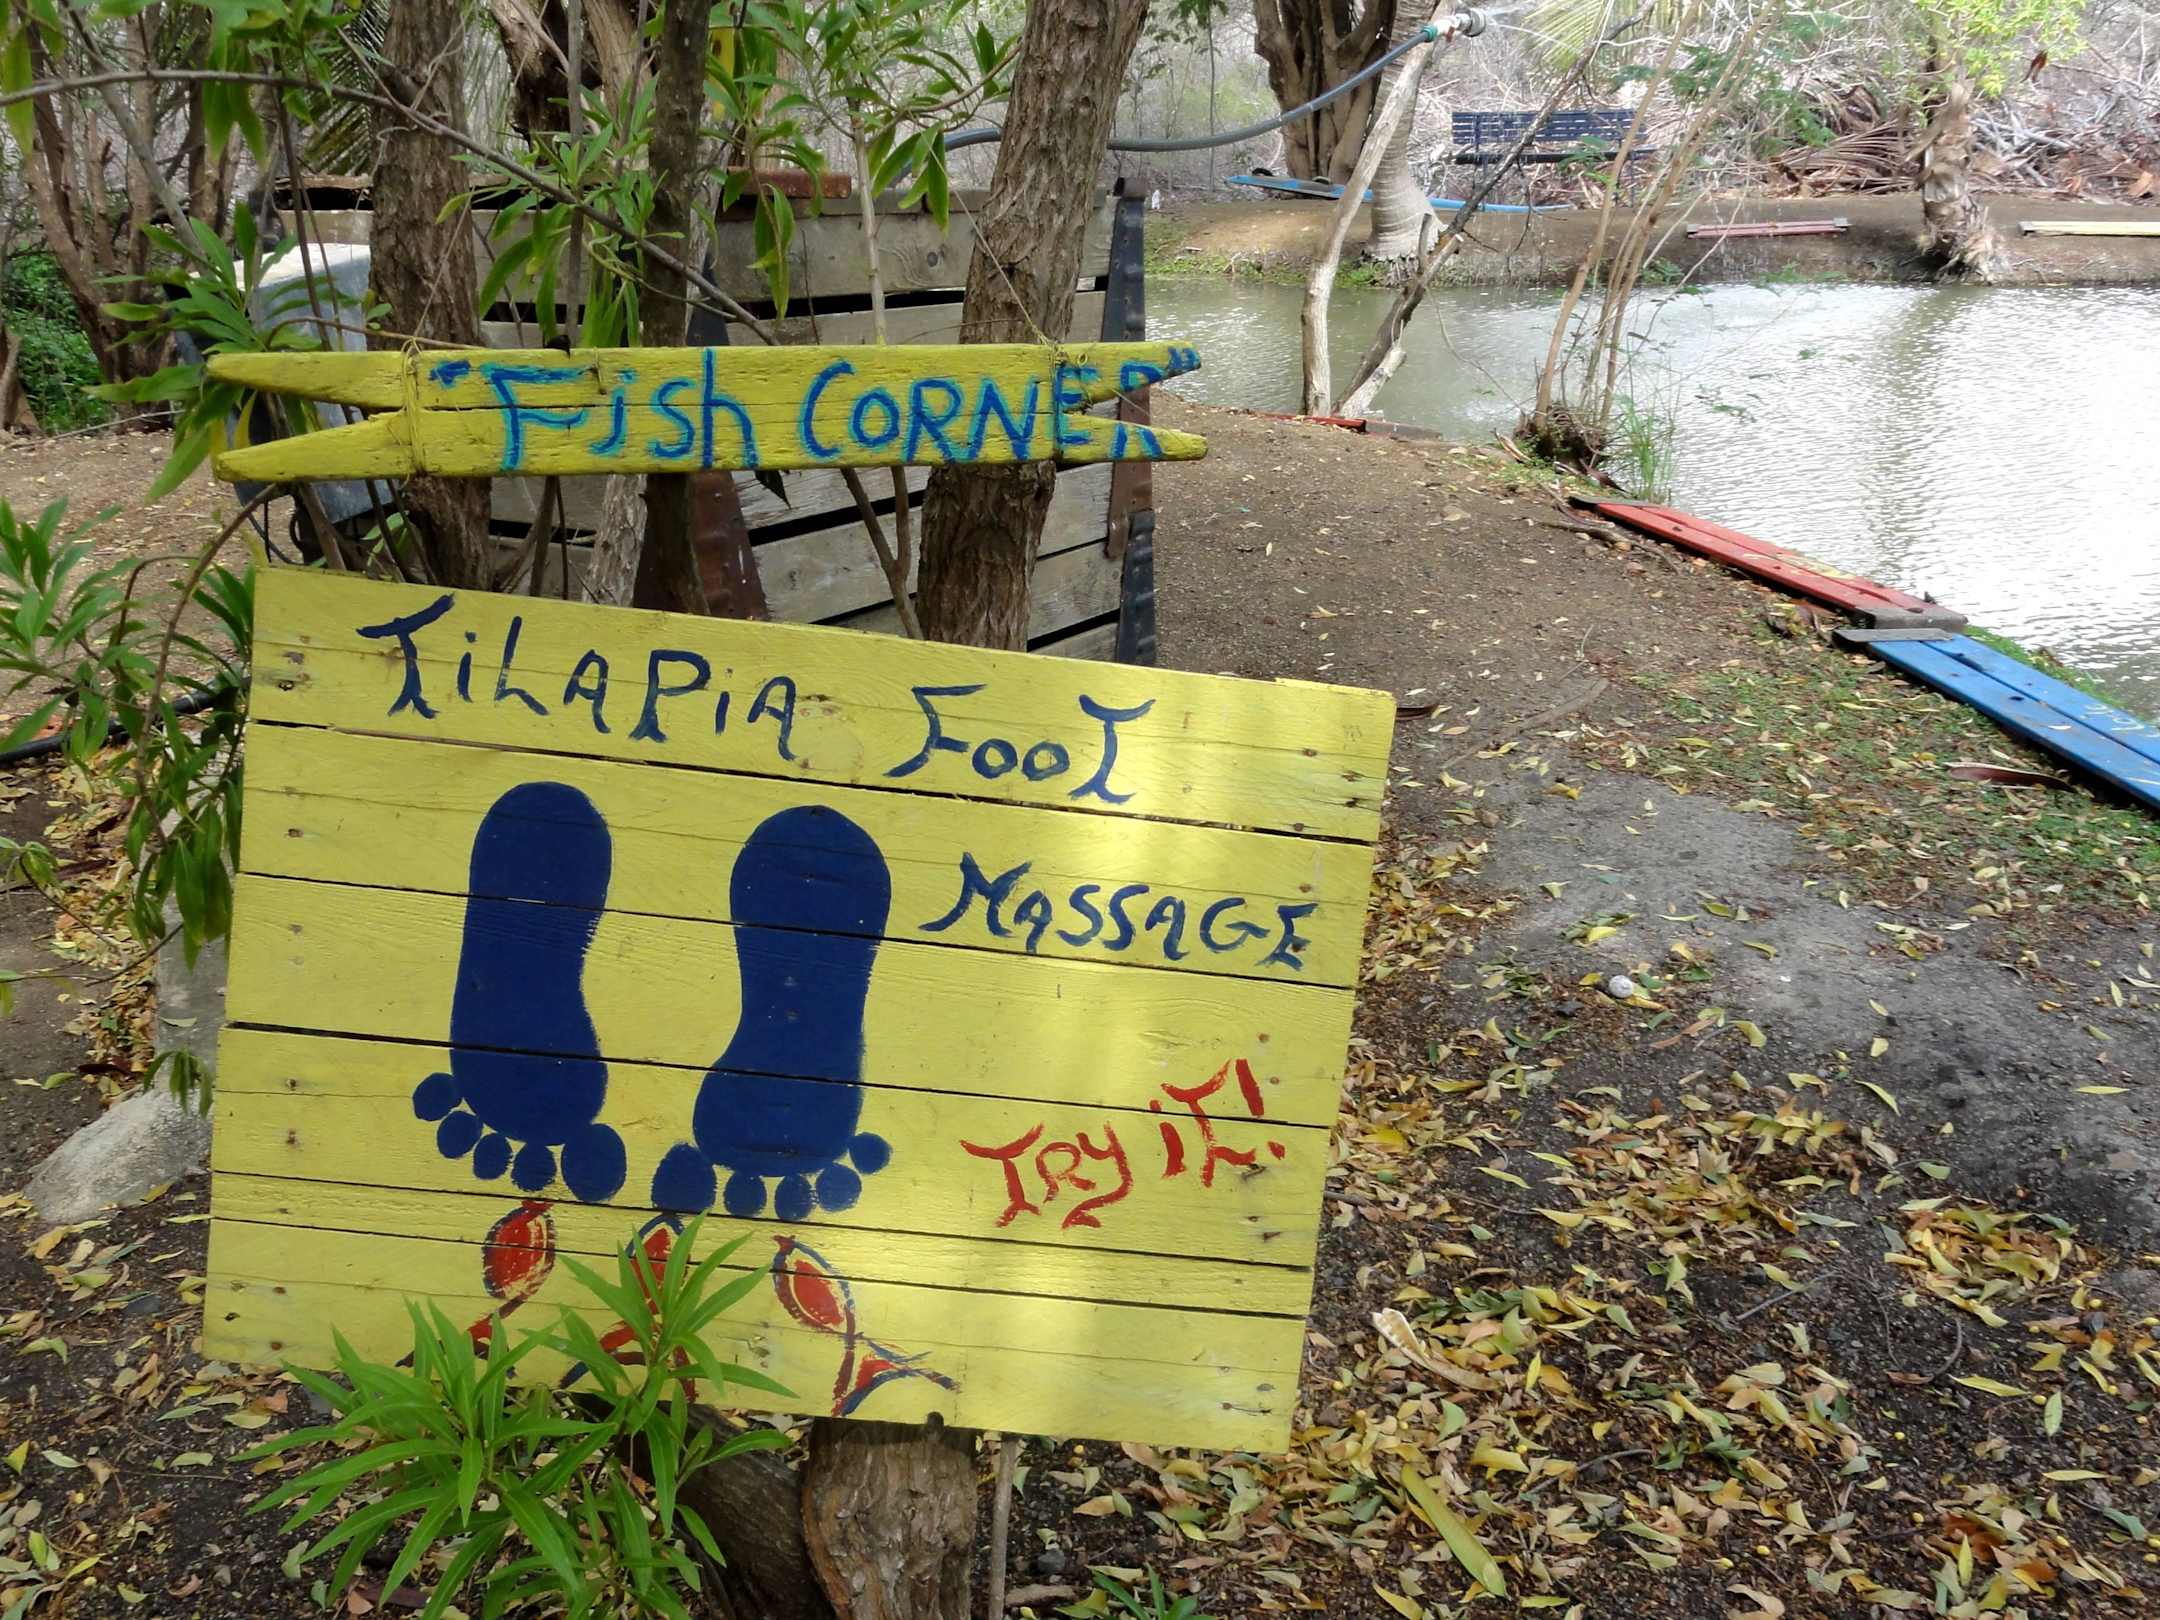 "Fish CORNER"
TiLAPiA FooT
MASSAGE
TRY iT!